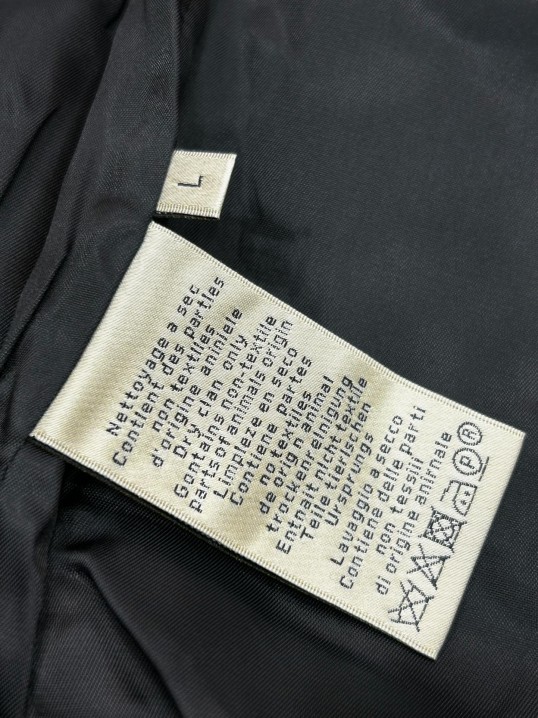 L
Nettoyage a sec
Contient des Partles
non textiles
d'origine aniniele
Dry clan only
Gontains non-textile
parts of animals origin
Limplese en seco
Contiene Partes
no textiles
de orign animal
trockenreinigung
Entnait nicht textile
Teile tierlschen
Ursprungs
Lavaggio a secco
Contiene delle
non tessili Parti
di origine anirnale
P R